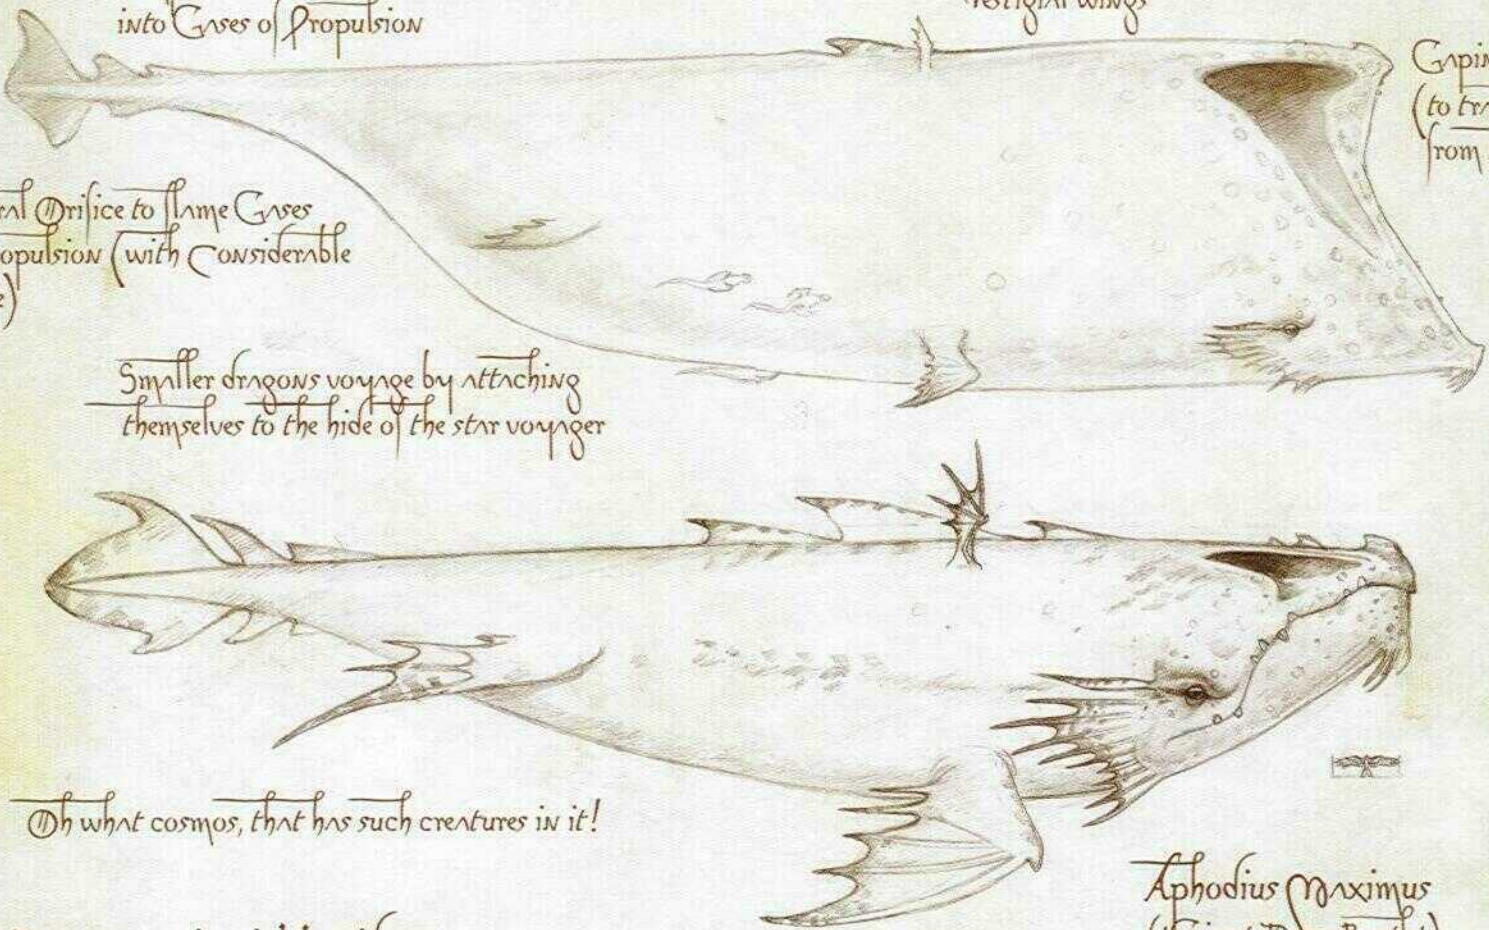 into Gases of Propulsion
Vestigial Wings
(to
from
Orifice to flame Gases
(with Considerable
Smaller dragons voyage by attaching
themselves to the hide of the star voyager
Oh what cosmos, that has such creatures in it!
Aphodius Maximus